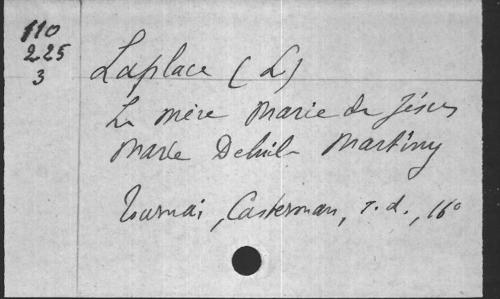 110
225
3
Laplace (L)
La mère Marie de Jésus
Marie Martiny
Tournai, Casterman, s.d., 16°